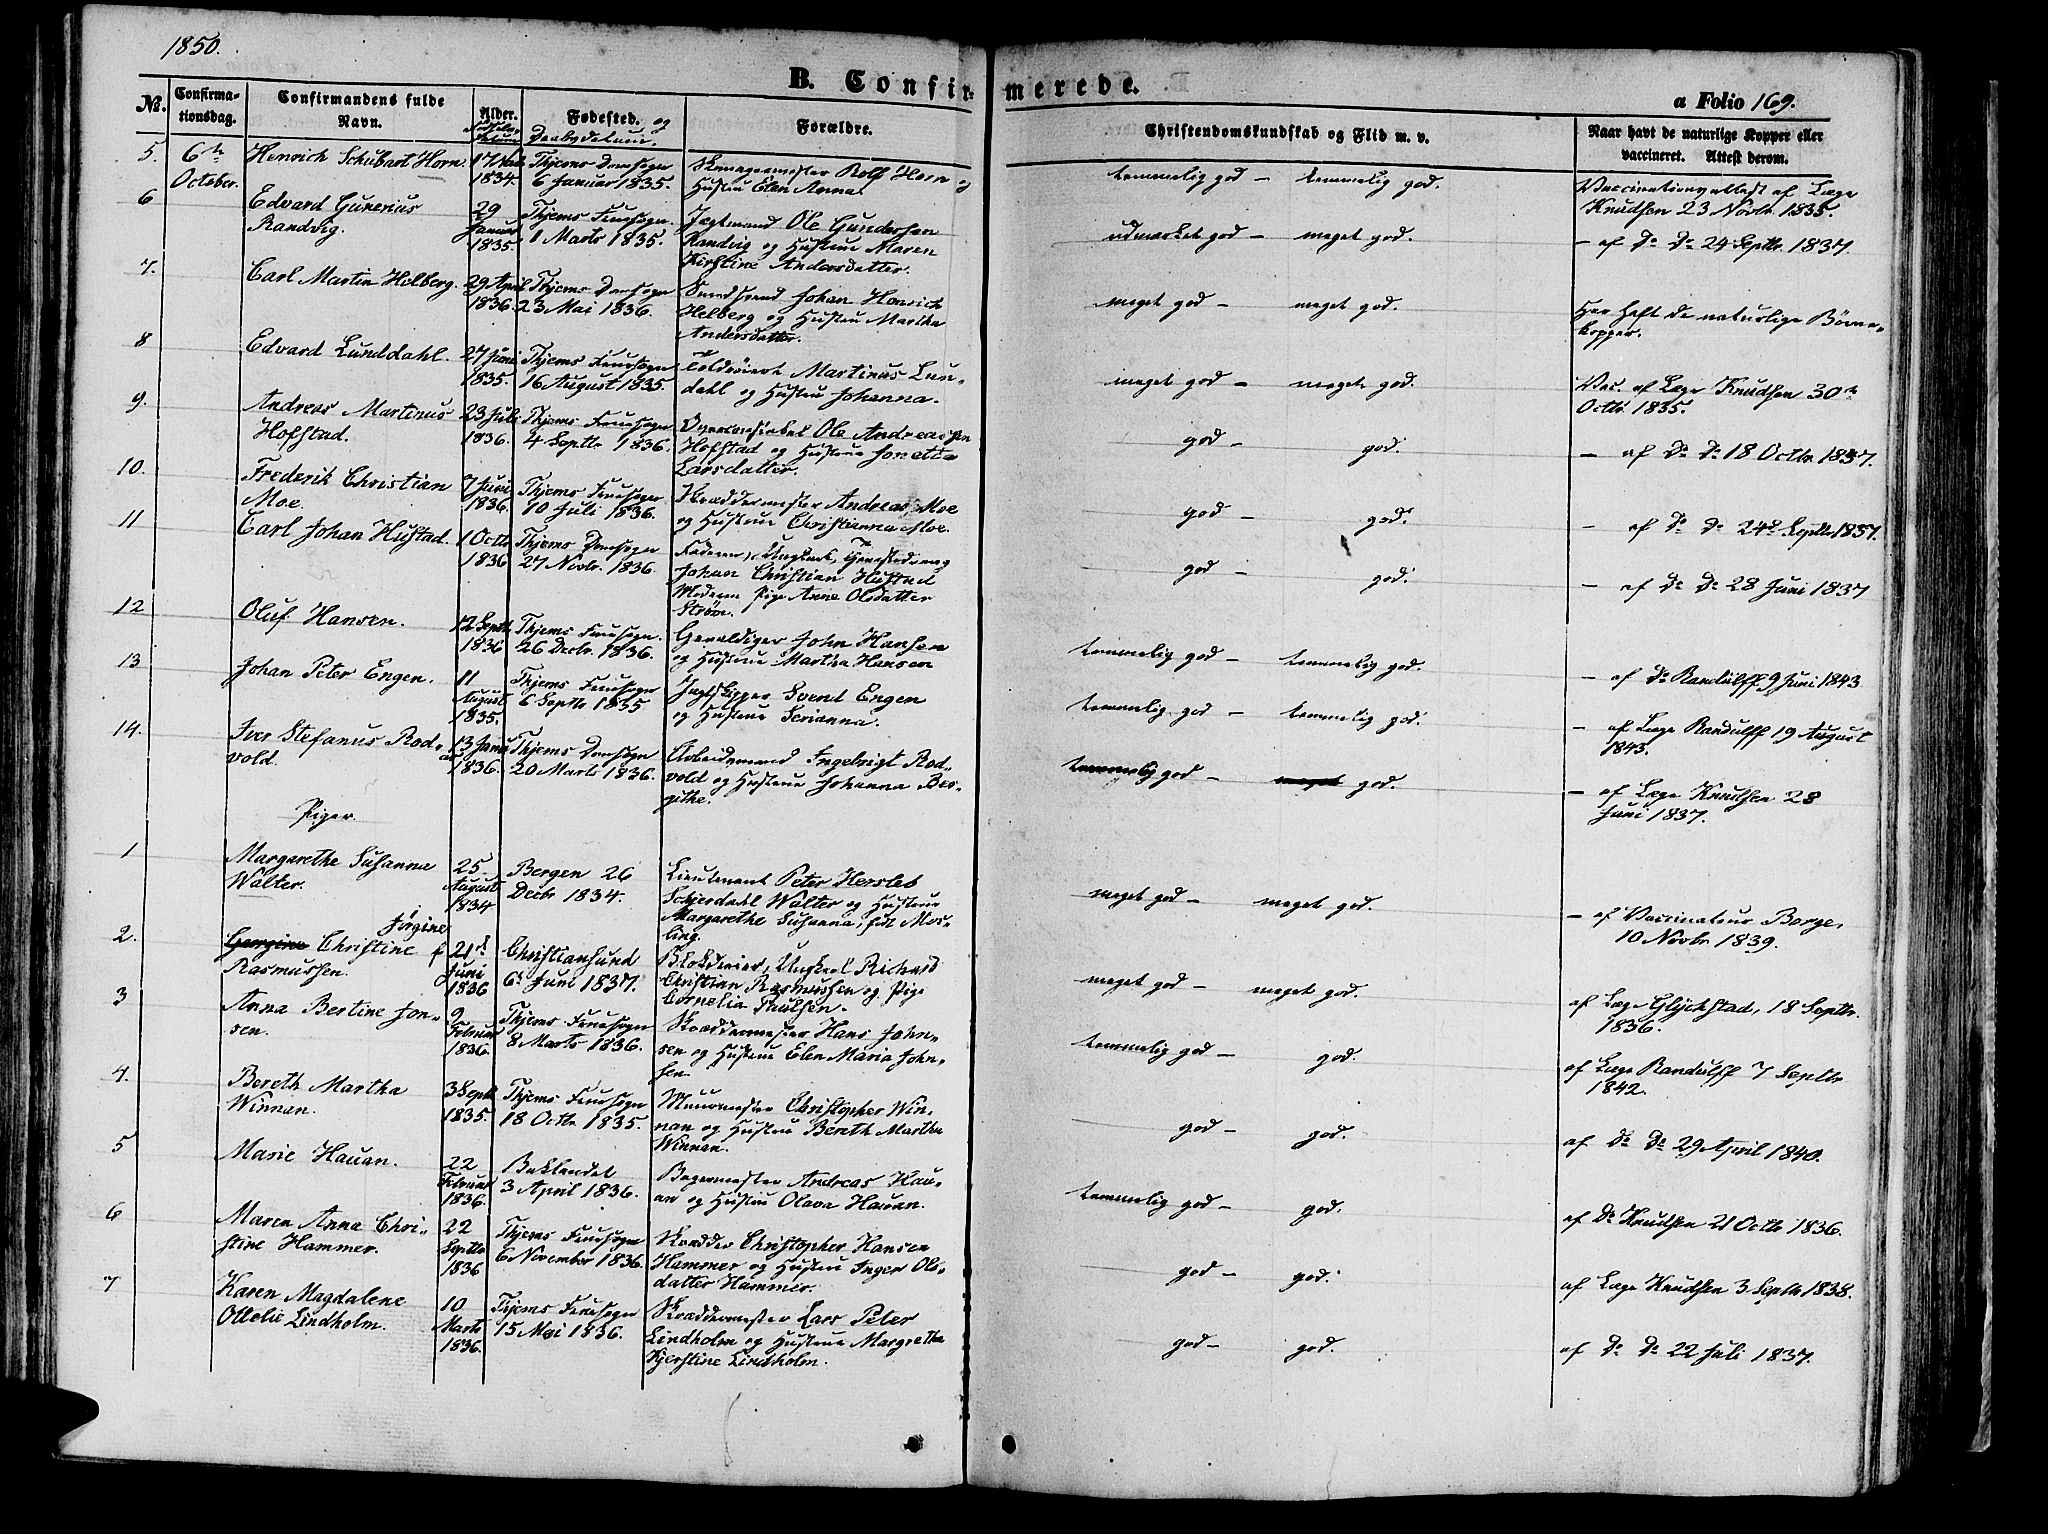 1850.
B. Confir-
merede.
a Folio 169.
No. Confirma-tionsdag. Confirmandens fulde Navn. Alder. Fødested. og Daabsdatum. Forældre. Christendomskundskab og Flid m. v. Naar havt de naturlige Kopper eller vaccineret. Attest derom.
5. 6te October. Henrich Schubart Horn. 17 1834. Thjems Domsogn 6 Januar 1835. Rolf Horn og Hustru Elen Anna. temmelig god – temmelig god. Vaccinationsattest af Læge Knudsen 23 Novbr 1835.
6 Edvard Gunerius Randvig. 29 Januar 1835. Thjems Fruesogn. 1 Marts 1835. Jægtmand Ole Gundersen Randvig og Hustrue Maren Kirstine Andersdatter. udmærket god – meget god. – af Do Do 24 Septbr. 1837.
7. Carl Martin Helberg. 29 April 1836. Thjems Domsogn 23 Mai 1836. Johan Henrich Helberg og Hustru Martha Andersdatter. meget god – meget god. Har haft de naturlige Børne-kopper.
8 Edvard Lunddahl. 27 Juni 1835. Thjems Fruesogn 16 August 1835. Martinus Lun-dahl og Hustru Johanna. meget god – meget god. Vac. af Læge Knudsen 30te Octbr 1835.
9. Andreas Martinus Hofstad. 23 Juli 1836. Thjems Fruesogn 4 Septbr 1836. Ole Andreassen Hofstad og Hustrue Jonetta Larsdatter. god – god. – af Do Do 18 Octbr 1837.
10. Frederik Christian Moe. 7 Juni 1836. Thjems Fruesogn 10 Juli 1836. Skræddermester Andreas Moe og Hustrue Christianna Moe. god – god. – af Do Do 24de Septbr 1837.
11 Carl Johan Hustad. 1 Octbr 1836 Thjems Domsogn 27 Novbr. 1836. Faderen, Ungkarl, Johan Christian Hustad Moderen Pige Anne Olsdatter Strøm. god – god. – af Do Do 28 Juni 1837
12 Oluf Hansen. 12 Septbr 1836 Thjems Fruesogn. 26 Decbr. 1836. Gevaldiger John Hansen og Hustrue Martha Hansen temmelig god – temmelig god. – af Do Randulff 9 Juni 1843
13 Johan Peter Engen. 11 August 1835. Thjems Fruesogn 6 Septbr 1835 Jagtskipper Svend Engen og Hustrue Serianna. temmelig god – temmelig god. – af Læge Randulff 19 August 1843.
14. Iver Stefanus Rod-vold. 13 Januar 1836. Thjems Domsogn 20 Marts 1836. Arbeidsmand Ingebrigt Rod-vold og Hustrue Johanna Ber-githe. temmelig god – meget god. – af Læge Knudsen 28 Juni 1837.
Piger.
1 Margarethe Susanna Walter. 25 August 1834 Bergen 26 Decbr 1834. Lieutenant Peter Hersleb Schjerdahl Walter og Hustrue Margarethe Susanna, født Mos-ling. meget god – meget god. – af Vaccinateur Borge, 10 Novbr 1839.
2. Georgine Jørgine Christine Rasmussen. f 21de Juni 1836 Christiansund 6te Juni 1837. Ungkarl Richard Christian Rasmussen og Pige Cornelia Paulsen. meget god – meget god. af Læge Glückstad, 18 Septbr. 1836.
3 Anna Bertine Jon-sen. 9 Februar 1836. Thjems Fruesogn 8 Marts 1836. Skræddermester Hans John-sen og Hustrue Elen Maria John-sen. temmelig god – god. af Læge Randulff 7 Septbr 1842.
4. Bereth Martha Winnan. 3 Septb 1835. Thjems Fruesogn 18 Octbr 1835. Muurmester Christopher Win-nan og Hustrue Bereth Martha Winnan. god – god. af Do Do 29 April 1840.
5 Marie Hauan. 22 Februar 1836. Baklandet 3 April 1836. Bagermester Andreas Hau-an og Hustrue Olava Hauan. temmelig god – god. af Do Knudsen 21 Octbr 1836.
6 Maren Anna Chri-stine Hammer. 22 Septbr 1836 Thjems Fruesogn 6 November 1836. Skrædder Christopher Hansen Hammer og Hustrue Inger Ols-datter Hammer. god – god. af Læge Knudsen 3 Septbr 1838.
7 Karen Magdalene Ottolie Lindholm. 10 Marts 1836. Thjems Fruesogn 15 Mai 1836. Skræddermester Lars Peter Lindholm og Hustrue Margretha Kjerstine Lindholm. god – god. af Do Do 22 Juli 1837.